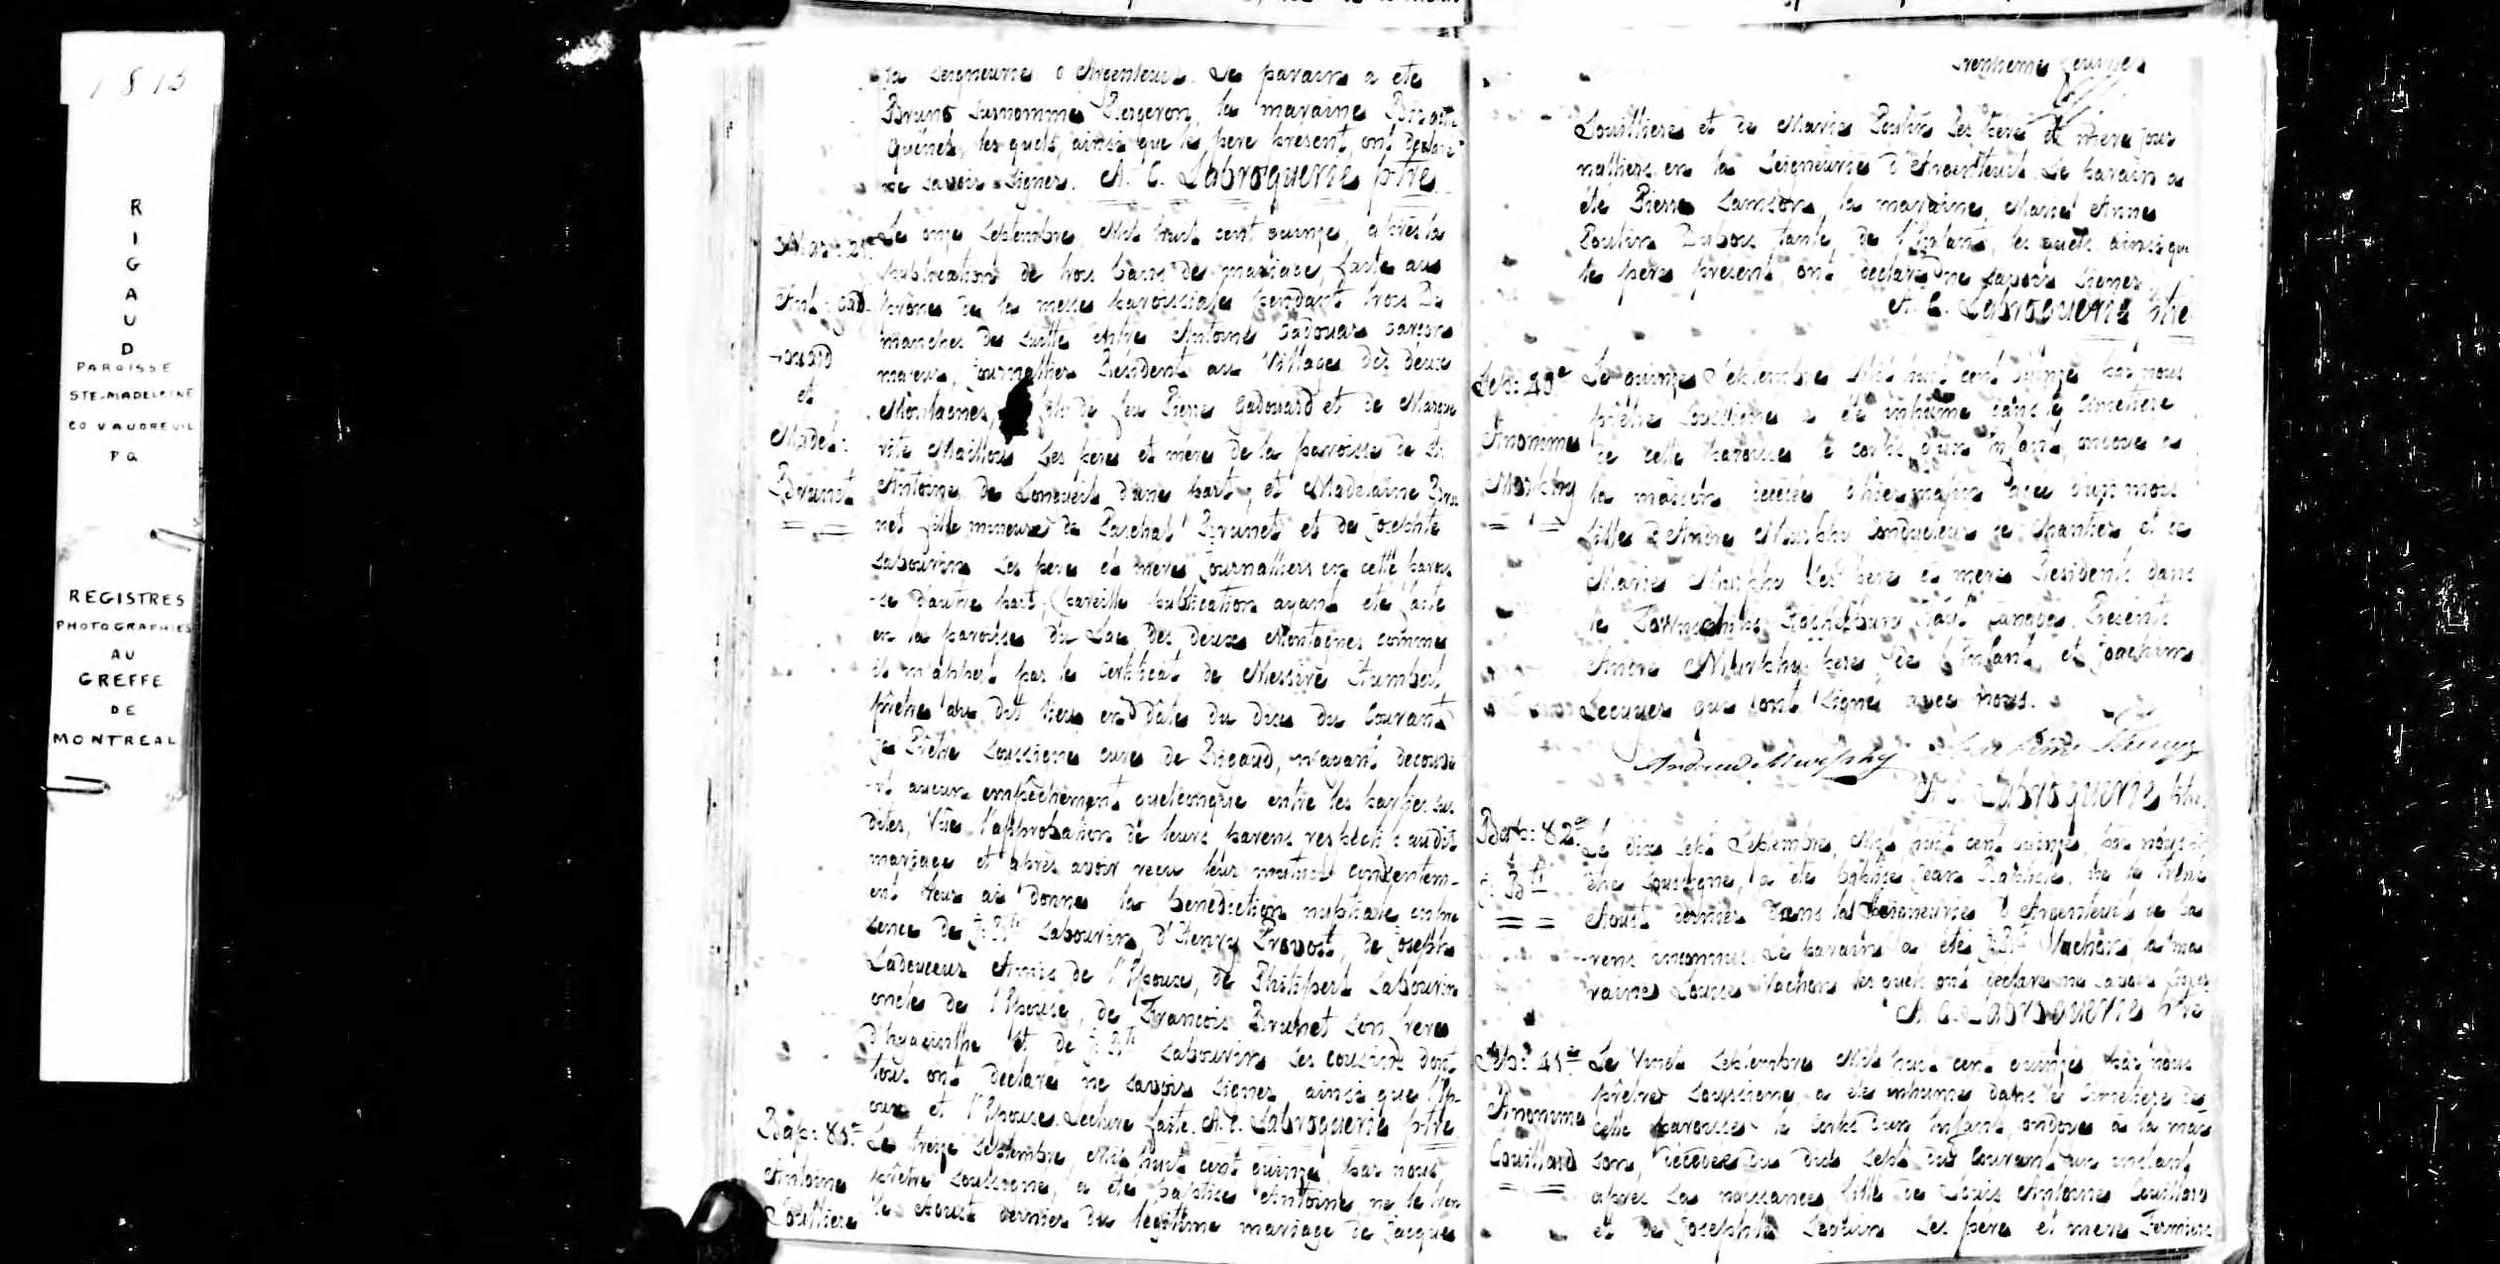 1815
RIGAUD
PAROISSE
STE-MADELEINE
CO VAUDREUIL
P Q
REGISTRES
PHOTOGRAPHIES
AU
GREFFE
DE
MONTREAL
la Seigneurie d'Argenteuil. Le parain a été
Bruno surnommé Bergeron, la maraine
les quels, ainsi que le père présent, ont déclaré
ne savoir signer. A. C. Labroquerie ptre
Mar: 21e
Ant: Gad-
-ouard
et
Madel:
Brunet
Le onze Septembre, Mil huit cent quinze, après la
publication de trois bans de mariage, faite aux
prônes de la messe paroissiale pendant trois Di
manches de suitte entre Antoine Gadouar garçon
majeur, journallier Résident au Village des deux
Montagnes, fils de feu Pierre Gadouard et de Margue
rite Mailloux ses père et mère de la paroisse de St
Antoine de Longueil d'une part; et Madelaine Bru
net fille mineure de Paschal Brunet et de josephte
Sabourin ses père et mère journalliers en cette parois
-se d'autre part; pareille publication ayant été faite
en la paroisse du Lac des deux Montagnes comme
il m'appert par le certificat de Messire Humbert
prêtre au dit lieu en date du dix du Courant
je Prêtre soussigné curé de Rigaud, n'ayant découve
-rt aucun empêchement quelconque entre les parties sus
dites, Vûe l'approbation de leurs parens respectifs audit
mariage et après avoir reçu leur mutuel consentem-
ent leur ai donné la bénédiction nuptiale enpre
sence de j: Bte Sabourin, d'Henry Prevost, de joseph
Ladouceur Amis de l'Epoux, de Philipert Sabourin
oncle de l'Epouse, de François Brunet son frere
d'hyacinthe et de j: Bte Sabourin ses cousins dont
tous ont déclaré ne savoir signer ainsi que l'Ep-
oux et l'Epouse. Lecture faite. A. C. Labroquerie ptre
Bap: 81e
Antoine
Souilliere
Le treize Septembre, Mil huit cent quinze, par nous
prêtre soussigné, a été baptisé Antoine, né le tren
te Aoust dernier du légitime mariage de Jacques
trentième
Souilliere et de Marie Poulin ses père et mère jour
nalliers en la Seigneurie d'Argenteuil. Le parain a
été Pierre Samson, la maraine, Marie Anne
Poulin Dubois tante de l'Enfant, les quels ainsi que
le père présent ont déclaré ne savoir signer
A. C. Labroquerie ptre
Sep: 40e
Anonyme
Murphy
Le quinze Septembre Mil huit cent quinze par nous
prêtre soussigné a été inhumé dans le Cimetiere
de cette paroisse le corps d'un Enfant, ondoyé a
la maison décédé d'hier matin agé
fille d'André Murphy Conducteur de Chantier et de
Marie Murphy ses père et mère Residents dans
le Haut Canada. Présents
André Murphy père de l'Enfant, et joachim
Lecuyer qui ont signé avec nous.
Andrew Murphy
A. C. Labroquerie ptre
Bap: 82e
j: Bte
Le dix sept Septembre, Mil huit cent quinze, par nous pr
être soussigné, a été baptisé Jean Baptiste, né le trente
Aoust dernier dans la Seigneurie d'Argenteuil de pa
rens inconnus. Le parain a été j: Bte Vachon, la ma
raine Louise Vachon les quels ont déclaré ne savoir signer
A. C. Labroquerie ptre
Sep: 41e
Anonime
Couillard
Le Vingt Septembre Mil huit cent quinze, par nous
prêtre soussigné, a été inhumé dans le Cimetiere de
cette paroisse le corps d'un Enfant, ondoyé à la mai
son, décédé du dix sept du courant un instant
après sa naissance, fille de Louis Antoine Couillard
et de josephte Seguin ses père et mère Fermiers